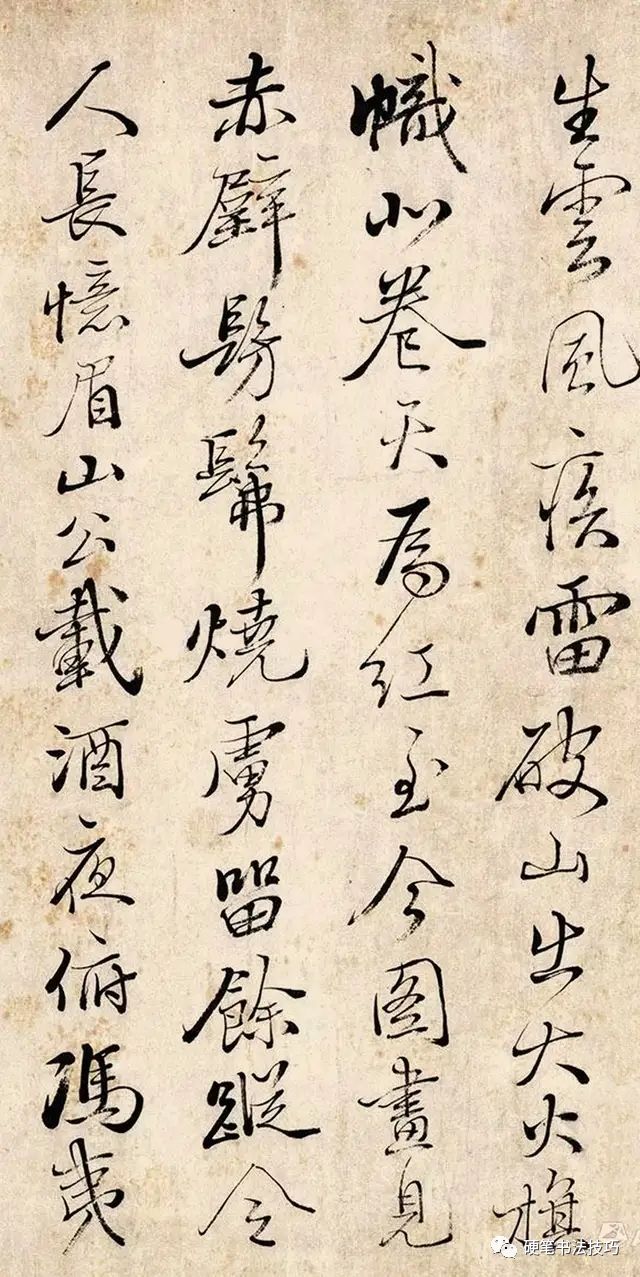 生雲風疾雷破山出大火旗
幟北卷天為紅至今图畫見
赤壁髣髴燒虜留餘蹤令
人長憶眉山公載酒夜俯馮夷
硬笔书法技巧